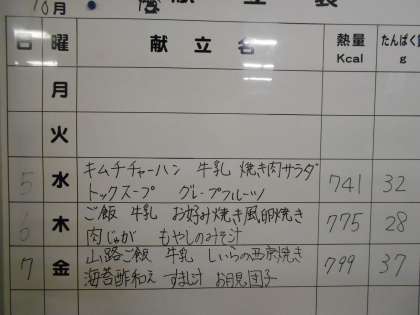 10月 献立表
日 曜 献立名 熱量 Kcal たんぱく質 g
月
火
5 水 キムチチャーハン 牛乳 焼き肉サラダ 741 32
トックスープ グレープフルーツ
6 木 ご飯 牛乳 お好み焼き風卵焼き 775 28
肉じゃが もやしのみそ汁
7 金 山路ご飯 牛乳 しいらの西京焼き 799 37
海苔酢和え すまし汁 お月見団子